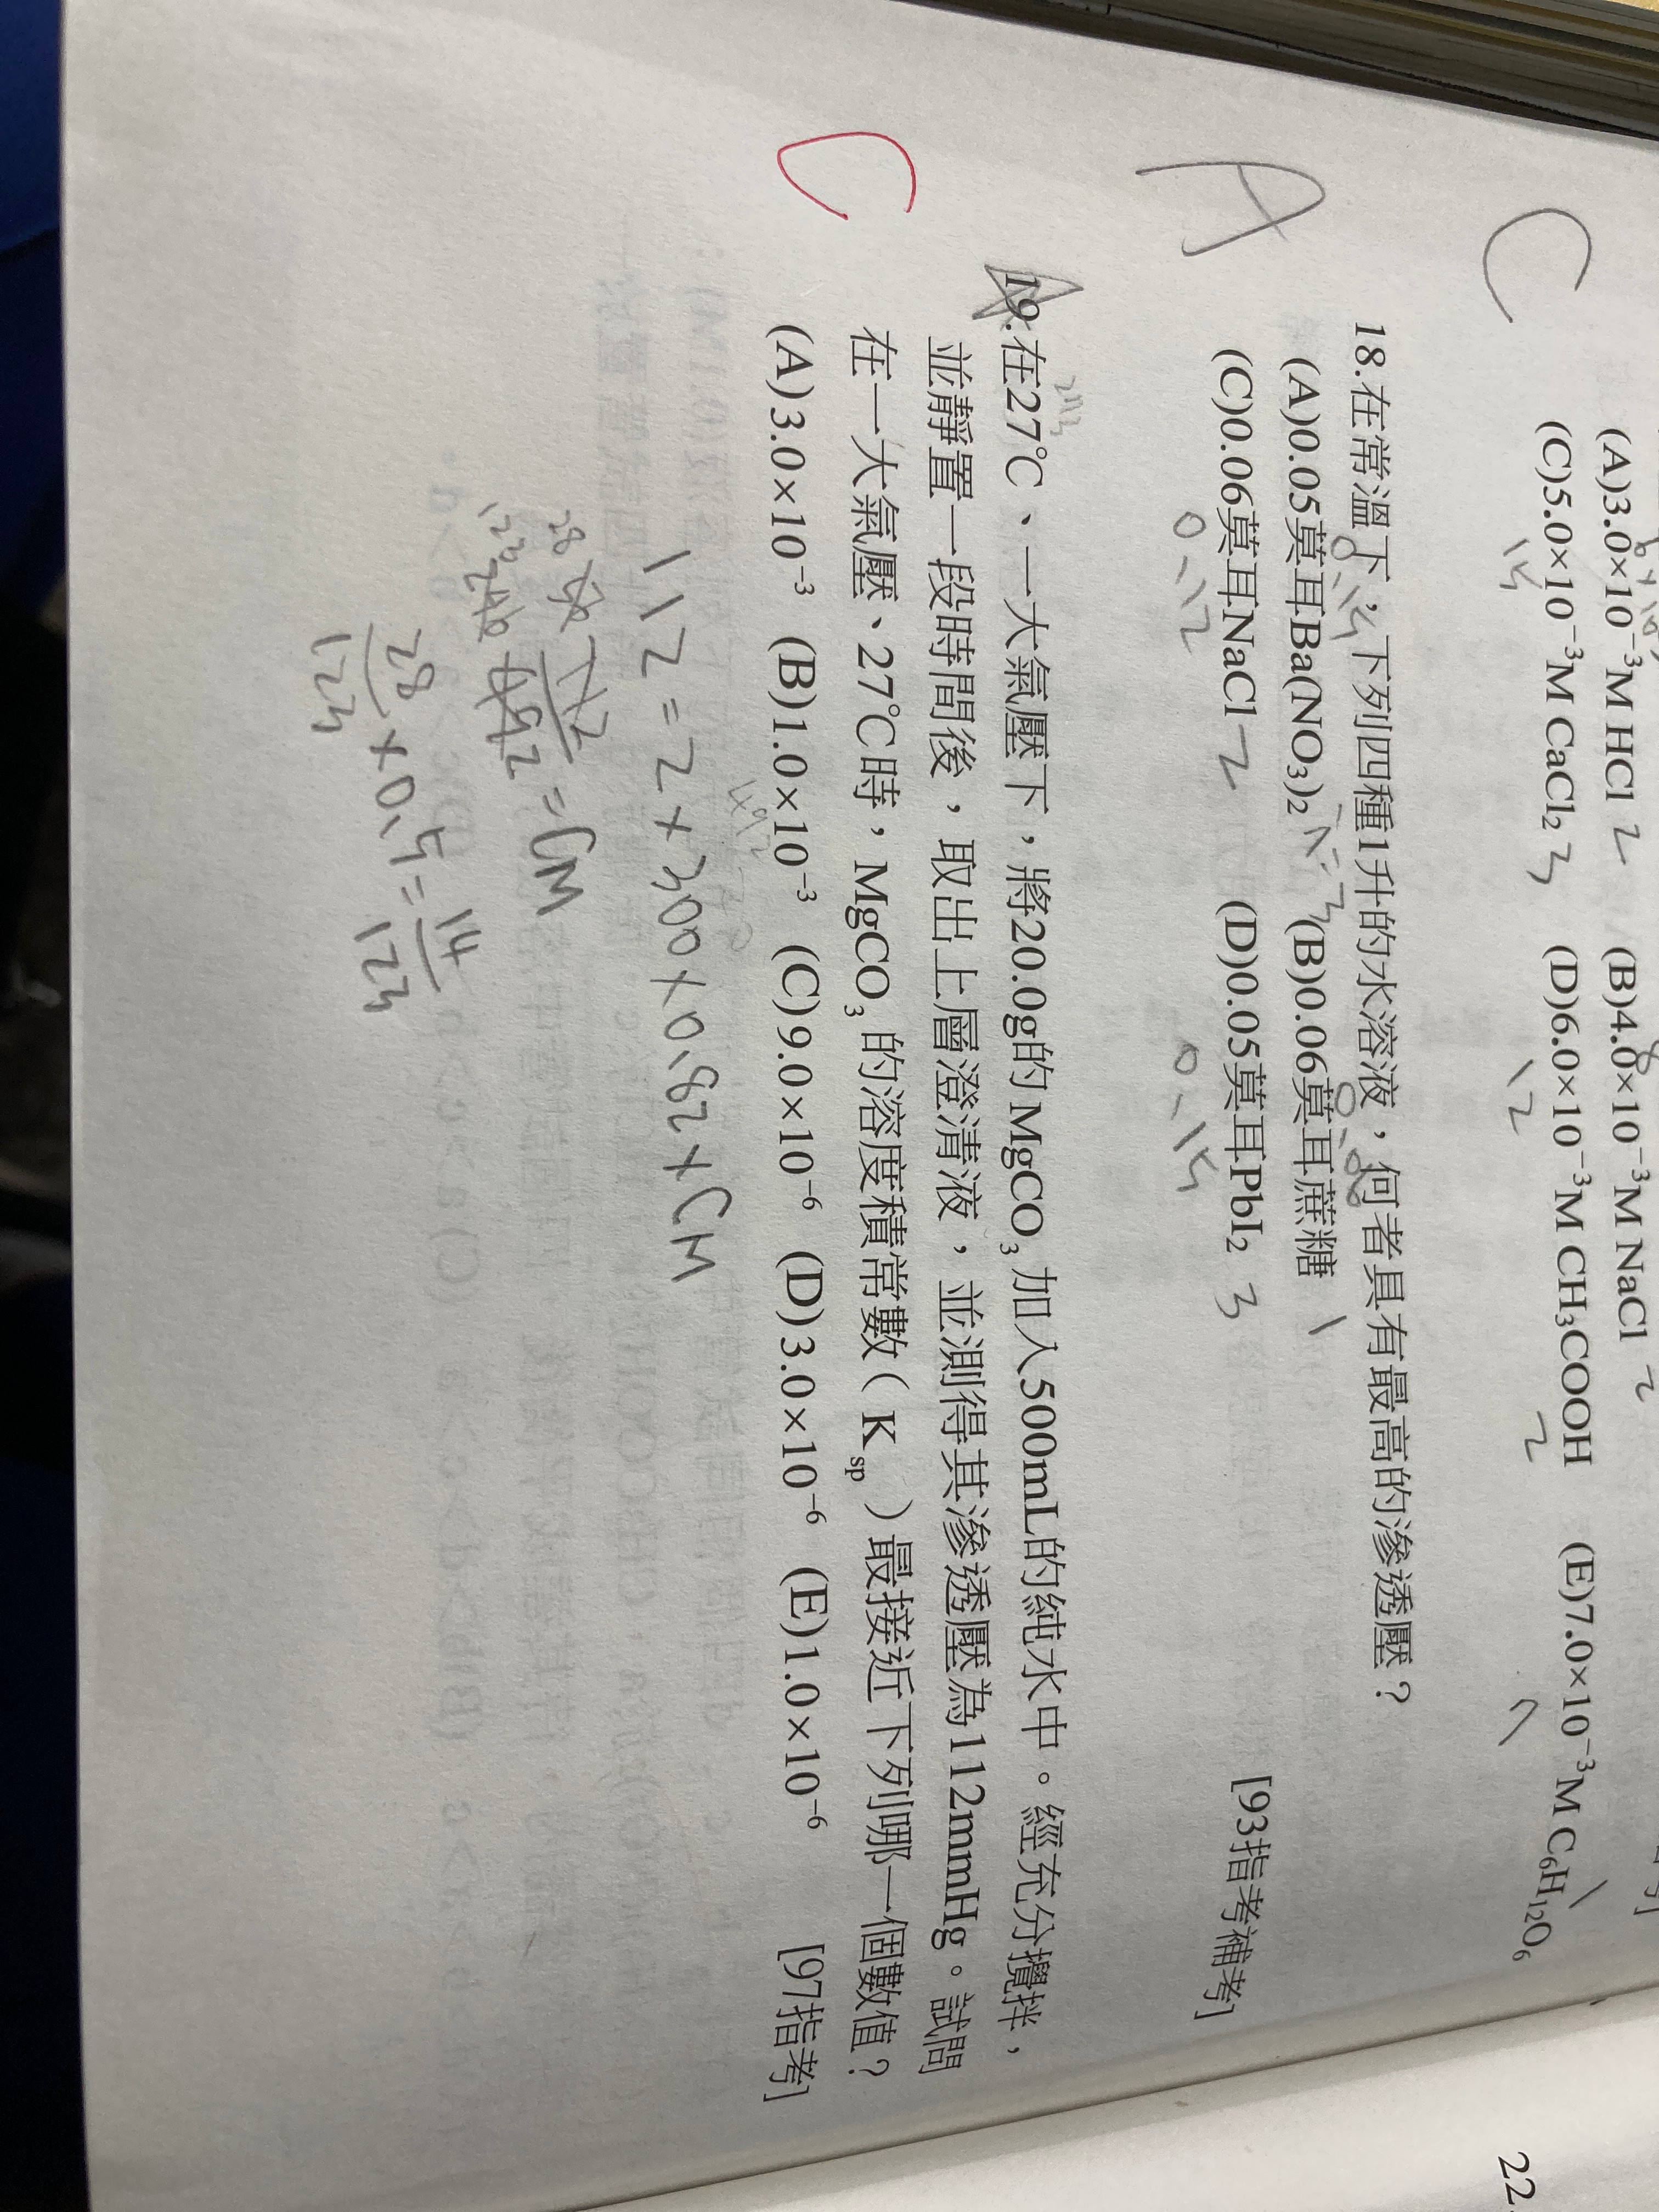 (A)3.0×10⁻³M HCl 2 (B)4.0×10⁻³M NaCl 2
(C)5.0×10⁻³M CaCl₂ 3 (D)6.0×10⁻³M CH₃COOH 2 (E)7.0×10⁻³M C₆H₁₂O₆ 1
15 12 7
C
18.在常溫下，下列四種1升的水溶液，何者具有最高的滲透壓？
0.15 i=3 0.06
(A)0.05莫耳Ba(NO₃)₂ (B)0.06莫耳蔗糖 1
(C)0.06莫耳NaCl 2 (D)0.05莫耳PbI₂ 3 [93指考補考]
0.12 0.15
A
19.在27℃、一大氣壓下，將20.0g的MgCO₃加入500mL的純水中。經充分攪拌，
並靜置一段時間後，取出上層澄清液，並測得其滲透壓為112mmHg。試問
在一大氣壓、27℃時，MgCO₃的溶度積常數（Ksp）最接近下列哪一個數值？
(A)3.0×10⁻³ (B)1.0×10⁻³ (C)9.0×10⁻⁶ (D)3.0×10⁻⁶ (E)1.0×10⁻⁶ [97指考]
C
112=2×300×0.82×CM
492
112
492 = CM
28
123
28/123 ×0.5= 14/123
22.